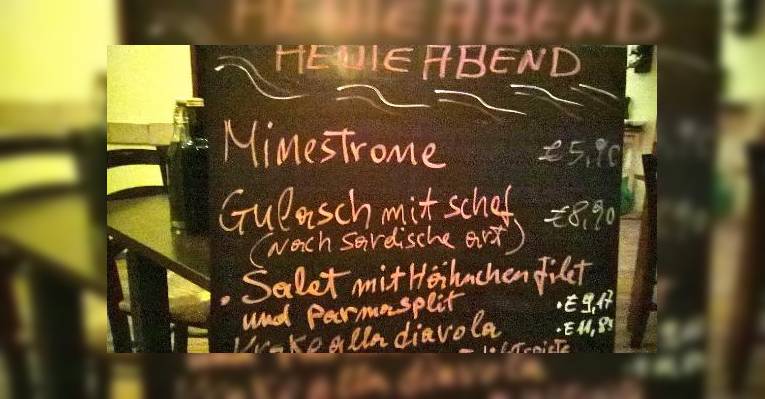 HEUTE ABEND
Minestrome €5,90
Gulasch mit schaf €8,90
(nach sardische art)
• Salat mit Höihnchen filet
und parmasplit • €9,17
Krake alla diavola • €11,89